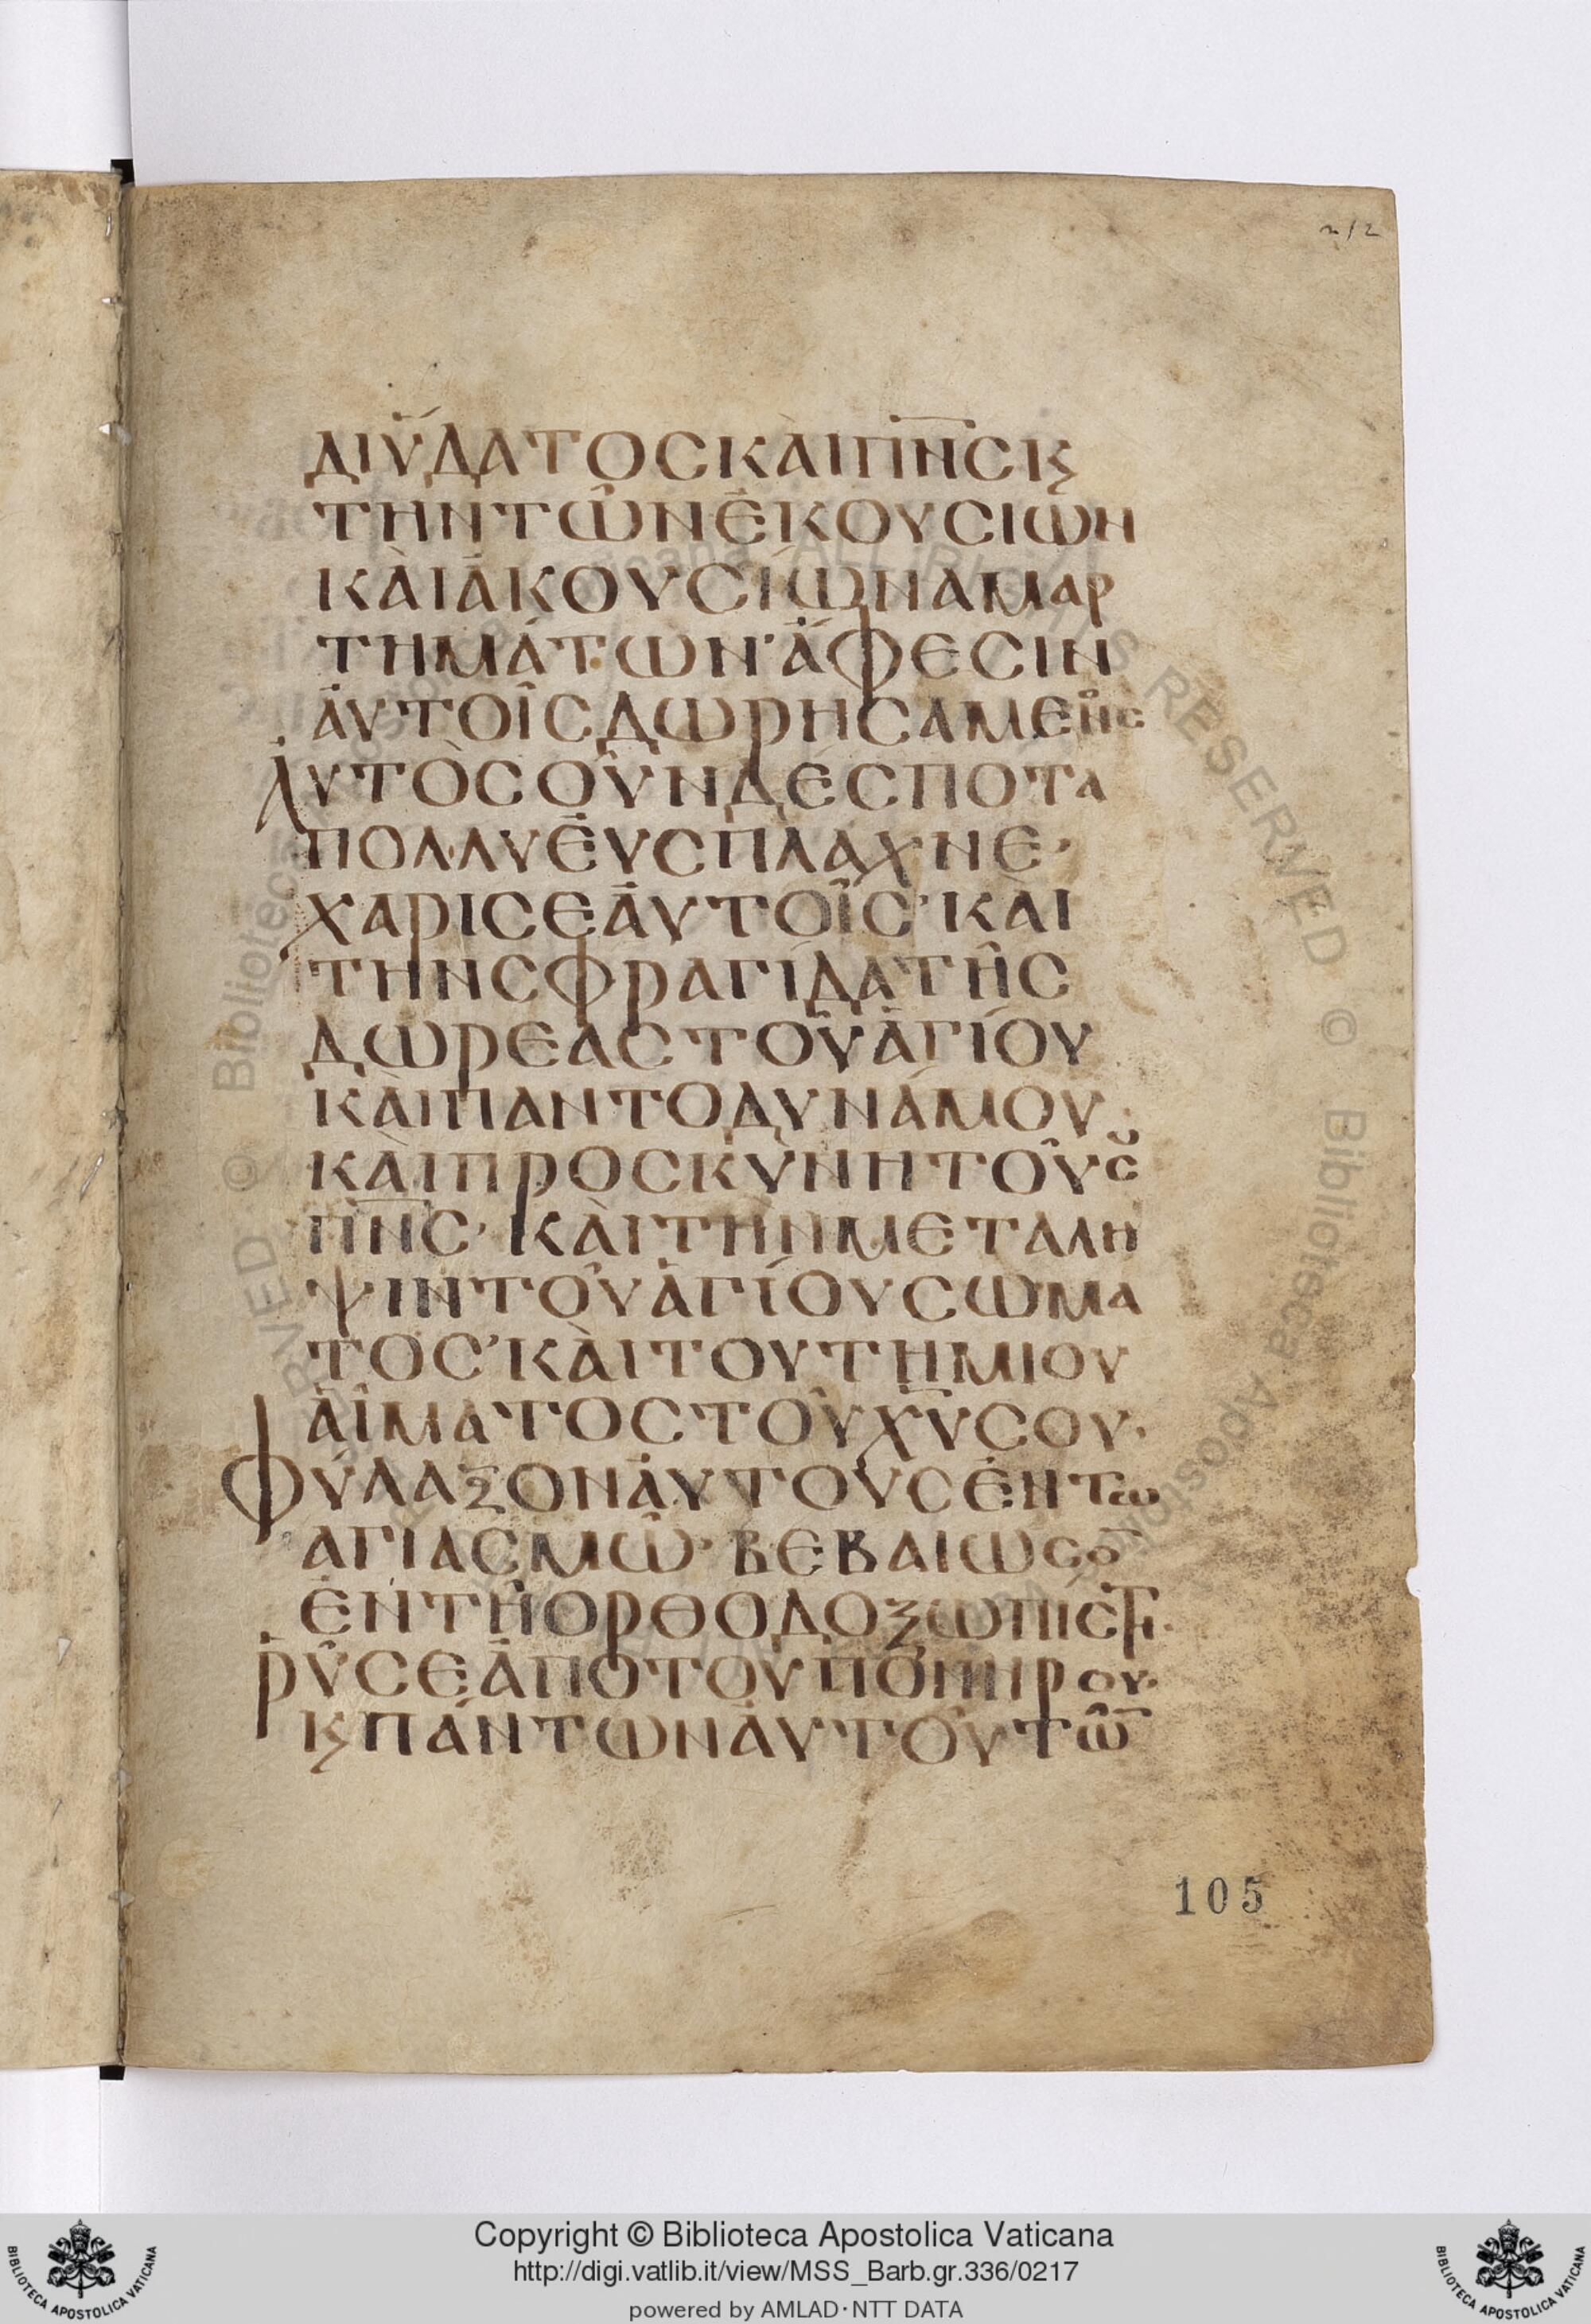 212
ΔΙΫ́ΔΑΤΟСΚᾺΙΠ̅Ν̅СΚ̣
ΤΗΝΤΩ͂ΝἘΚΟΥСΙΩΝ
ΚᾺΙἈΚΟΥСΙΏΝΑΜΑΡ
ΤΗΜΆΤΩΝ·ἌΦΕСΙΝ
ἈΥΤΟΙ͂СΔΩΡΗСΑΜΕΝοс
ἈΥΤῸСΟΥ͂ΝΔΈСΠΟΤΑ
ΠΟΛΛΥἘΥСΠΛΑΧΝΕ·
ΧΑΡΙСΕἈΥΤΟΙ͂С·ΚΑΙ
ΤΗΝСΦΡΑΓΊΔΑΤΗ͂С
ΔΩΡΕΑСΤΟΥ͂ἉΓΊΟΥ
ΚᾺΙΠΑΝΤΟΔΥΝΆΜΟΥ·
ΚᾺΙΠΡΟСΚΥΝΗΤΟΥ͂С͞
Π̅Ν̅С·ΚᾺΙΤῊΝΜΕΤΑΛΗ
ΨΙΝΤΟΥ͂ἉΓΊΟΥСΩΜΑ
ΤΟС·ΚᾺΙΤΟΥΤΗΜΙΟΥ
ἉΙ͂ΜΑΤΟСΤΟΥ͂Χ̅Υ̅СΟΥ·
ΦΎΛΑΞΟΝἈΥΤΟΥСἘΝΤΩ
ΑΓΙΑСΜΩ͂·ΒΕΒΑΙΩСΟ̅
ἘΝΤΗ͂ΟΡΘΟΔΟΞΩΠΙСΤΙ·
ῬΥ͂СΕἈΠΟΤΟΥΠΟΝΗΡΟΥ·
Κ̣ΠΆΝΤΩΝἈΥΤΟΥ͂ΤΩ͂̅
105
Copyright © Biblioteca Apostolica Vaticana
http://digi.vatlib.it/view/MSS_Barb.gr.336/0217
powered by AMLAD·NTT DATA
BIBLIOTECA APOSTOLICA VATICANA
BIBLIOTECA APOSTOLICA VATICANA